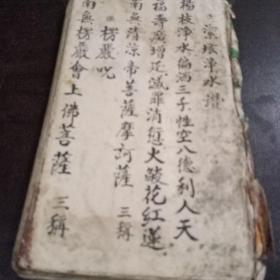 洒坛净水讚
楊枝淨水徧洒三千性空八德利人天
福壽廣增延滅罪消愆火燄花紅蓮
南無清涼帝菩薩摩訶薩 三稱
楞嚴咒
南無楞嚴會上佛菩薩 三稱